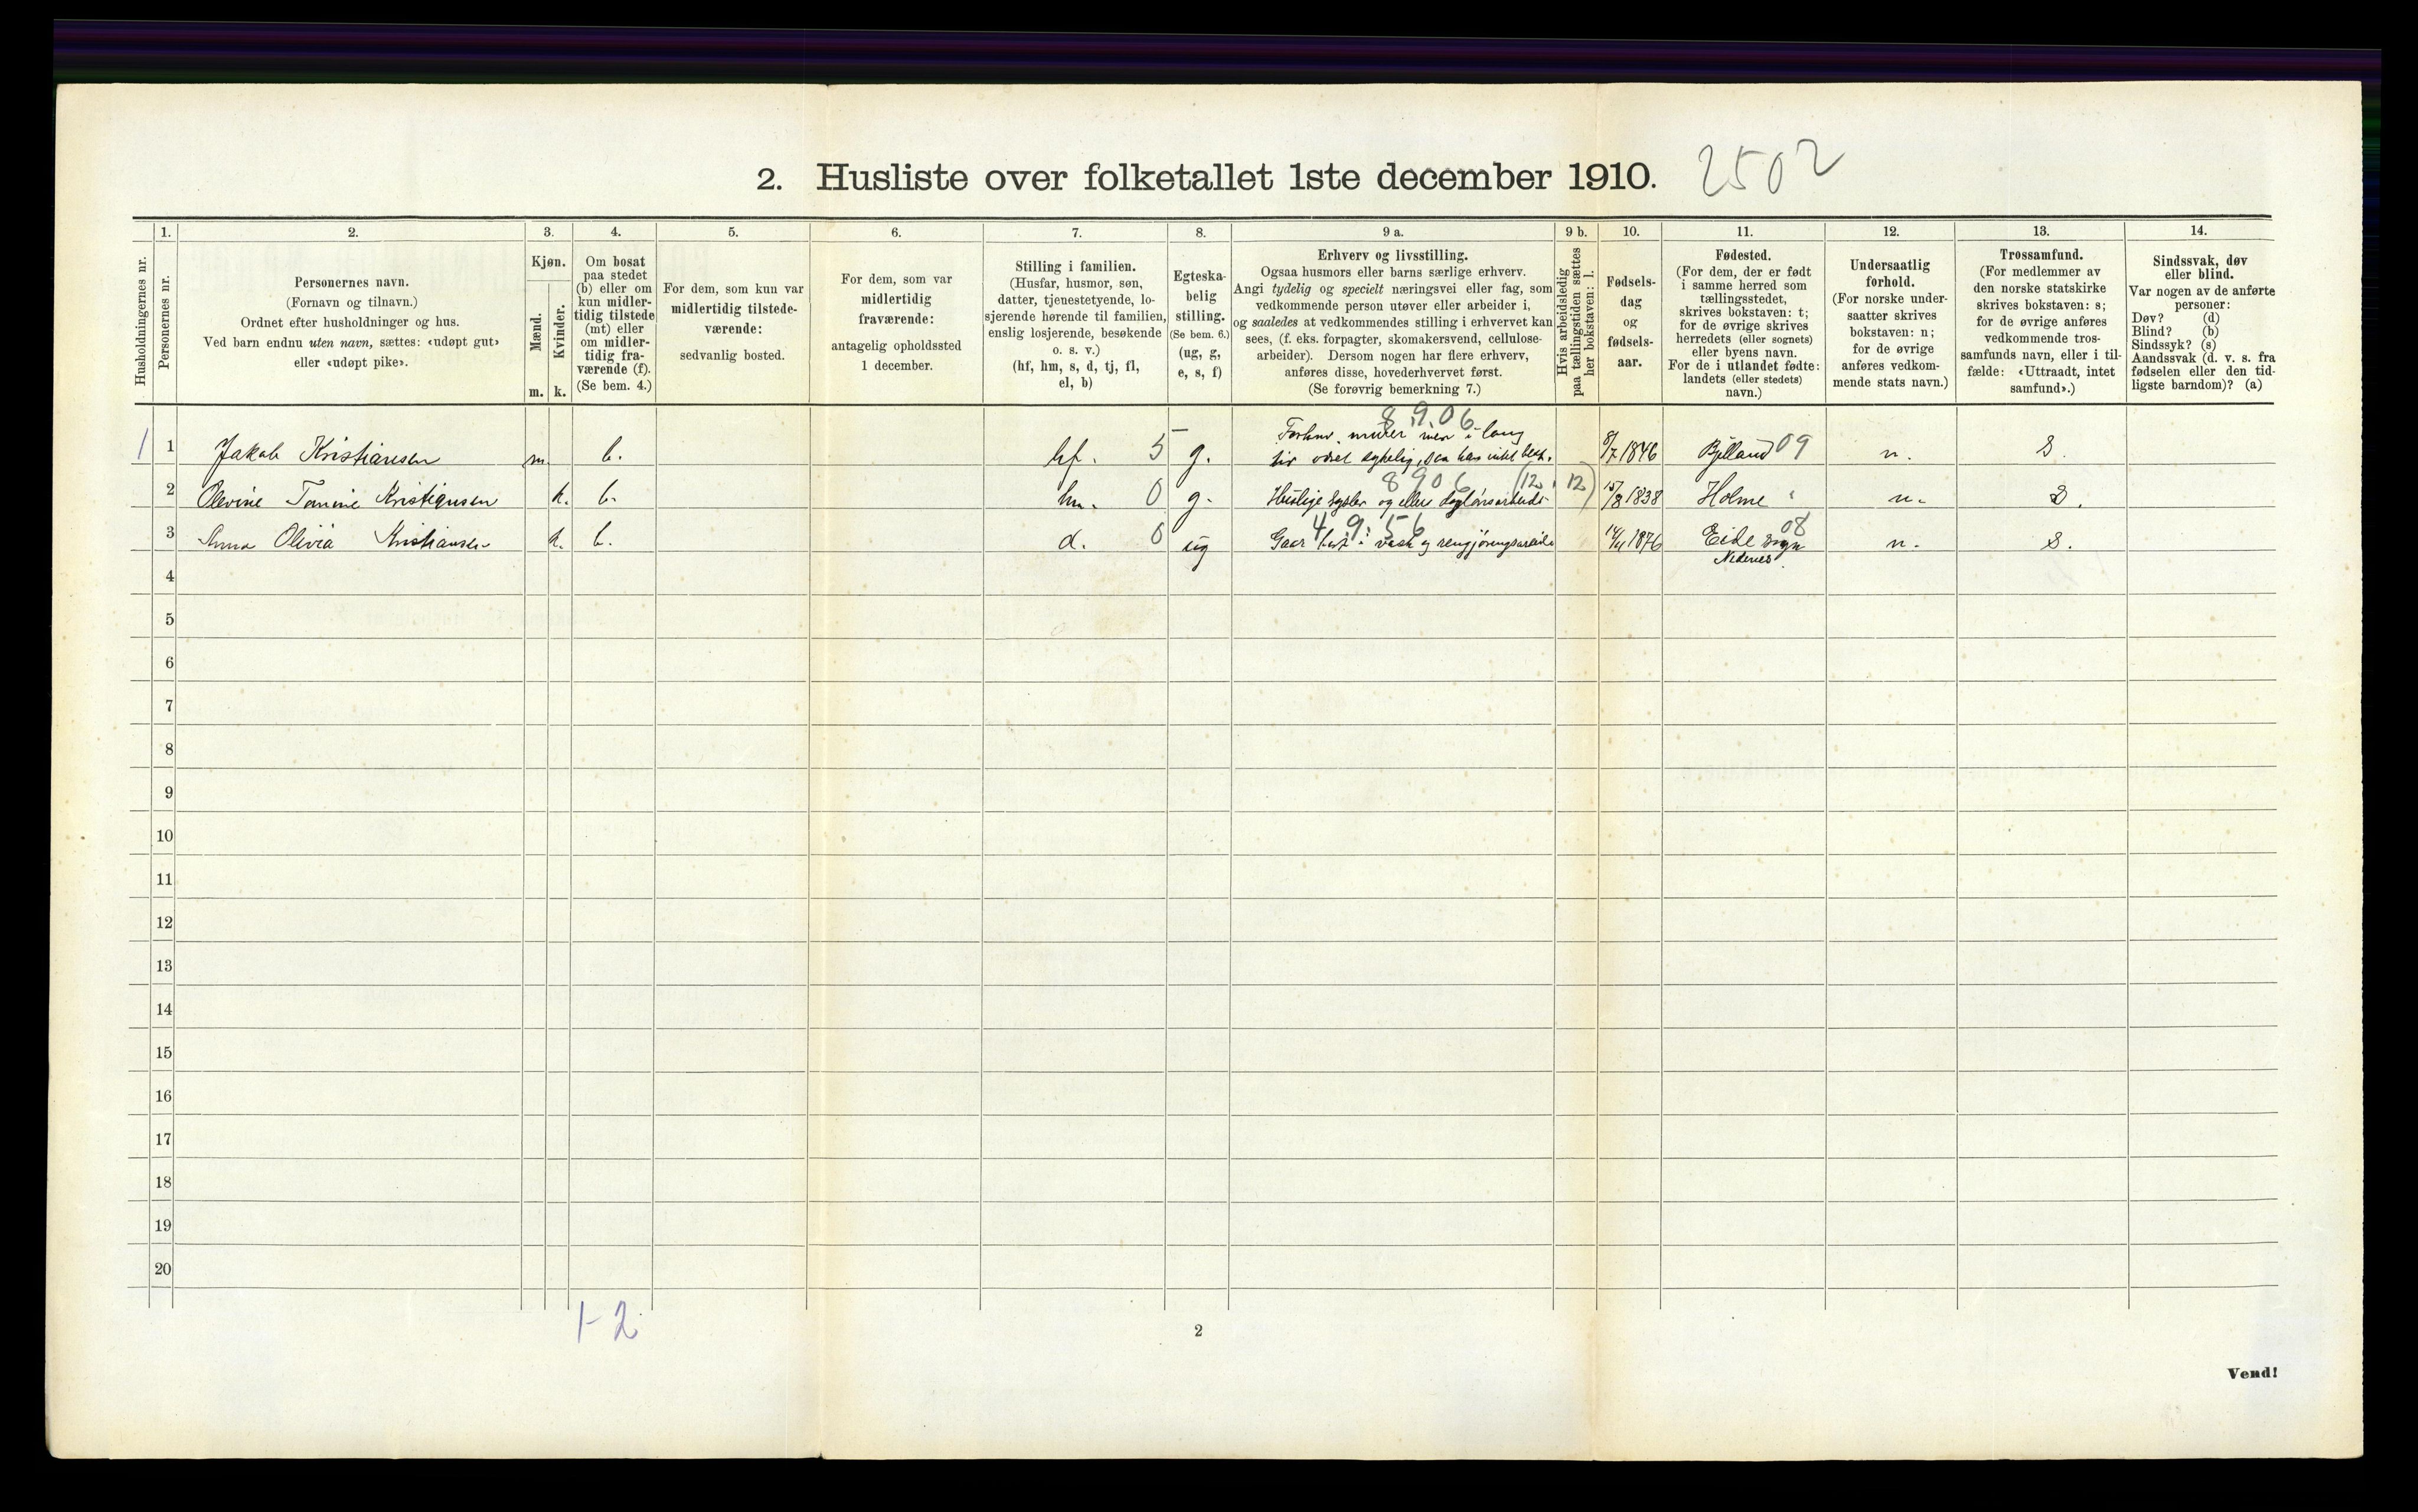 2. Husliste over folketallet 1ste december 1910. 2502
1. 2. 3. 4. 5. 6. 7. 8. 9 a. 9 b. 10. 11. 12. 13. 14.
Husholdningernes nr.
Personernes nr.
Personernes navn.
(Fornavn og tilnavn.)
Ordnet efter husholdninger og hus.
Ved barn endnu uten navn, sættes: «udøpt gut»
eller «udøpt pike».
Kjøn.
Mænd.
Kvinder.
m. k.
Om bosat
paa stedet
(b) eller om
kun midler-
tidig tilstede
(mt) eller
om midler-
tidig fra-
værende (f).
(Se bem. 4.)
For dem, som kun var
midlertidig tilstede-
værende:
sedvanlig bosted.
For dem, som var
midlertidig
fraværende:
antagelig opholdssted
1 december.
Stilling i familien.
(Husfar, husmor, søn,
datter, tjenestetyende, lo-
sjerende hørende til familien,
enslig losjerende, besøkende
o. s. v.)
(hf, hm, s, d, tj, fl,
el, b)
Egteska-
belig
stilling.
(Se bem. 6.)
(ug, g,
e, s, f)
Erhverv og livsstilling.
Ogsaa husmors eller barns særlige erhverv.
Angi tydelig og specielt næringsvei eller fag, som
vedkommende person utøver eller arbeider i,
og saaledes at vedkommendes stilling i erhvervet kan
sees, (f. eks. forpagter, skomakersvend, cellulose-
arbeider). Dersom nogen har flere erhverv,
anføres disse, hovederhvervet først.
(Se forøvrig bemerkning 7.)
Hvis arbeidsledig
paa tællingstiden sættes
her bokstaven: l.
Fødsels-
dag
og
fødsels-
aar.
Fødested.
(For dem, der er født
i samme herred som
tællingsstedet,
skrives bokstaven: t;
for de øvrige skrives
herredets (eller sognets)
eller byens navn.
For de i utlandet fødte:
landets (eller stedets)
navn.)
Undersaatlig
forhold.
(For norske under-
saatter skrives
bokstaven: n;
for de øvrige
anføres vedkom-
mende stats navn.)
Trossamfund.
(For medlemmer av
den norske statskirke
skrives bokstaven: s;
for de øvrige anføres
vedkommende tros-
samfunds navn, eller i til-
fælde: «Uttraadt, intet
samfund».)
Sindssvak, døv
eller blind.
Var nogen av de anførte
personer:
Døv? (d)
Blind? (b)
Sindssyk? (s)
Aandssvak (d. v. s. fra
fødselen eller den tid-
ligste barndom)? (a)
8.9.06
Forhnv. murer men i lang
1 1 Jakob Kristiansen m. b. hf. 5 g. tid været sykelig, 8/7 1846 Bjelland 09 n. S.
8906 (12) 12)
2 Olevine Tomine Kristiansen k. b. hm. 0 g. Huslige sysler og ellers daglønsarbeide 15/8 1838 Holme " n. S.
49:56 08
3 Anna Olivia Kristiansen k. b. d. 0 ug Gaar i vask og rengjøringsarbeide 14/11 1876 Eide sogn n. S.
Nedenes.
4
5
6
7
8
9
10
11
12
13
14
15
16
17
18
19
20
1-2
2
Vend!